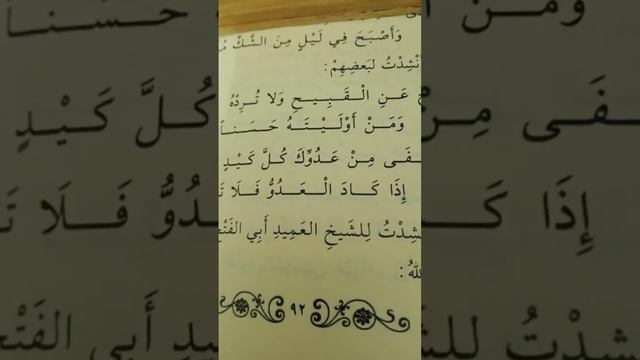 وَأَصْبَحَ فِي لَيْلٍ مِنَ الشَّكِّ
أُنْشِدْتُ لبَعضِهِمْ:
عَنِ الْقَبِيحِ وَلَا تُرِدْهُ
وَمَنْ أَوْلَيْتَهُ حَسَناً
مِنْ عَدُوِّكَ كُلَّ كَيْدٍ
إِذَا كَادَ الْعَدُوُّ فَلَا
لِلشَّيخِ العَمِيدِ أَبِي
٩٢